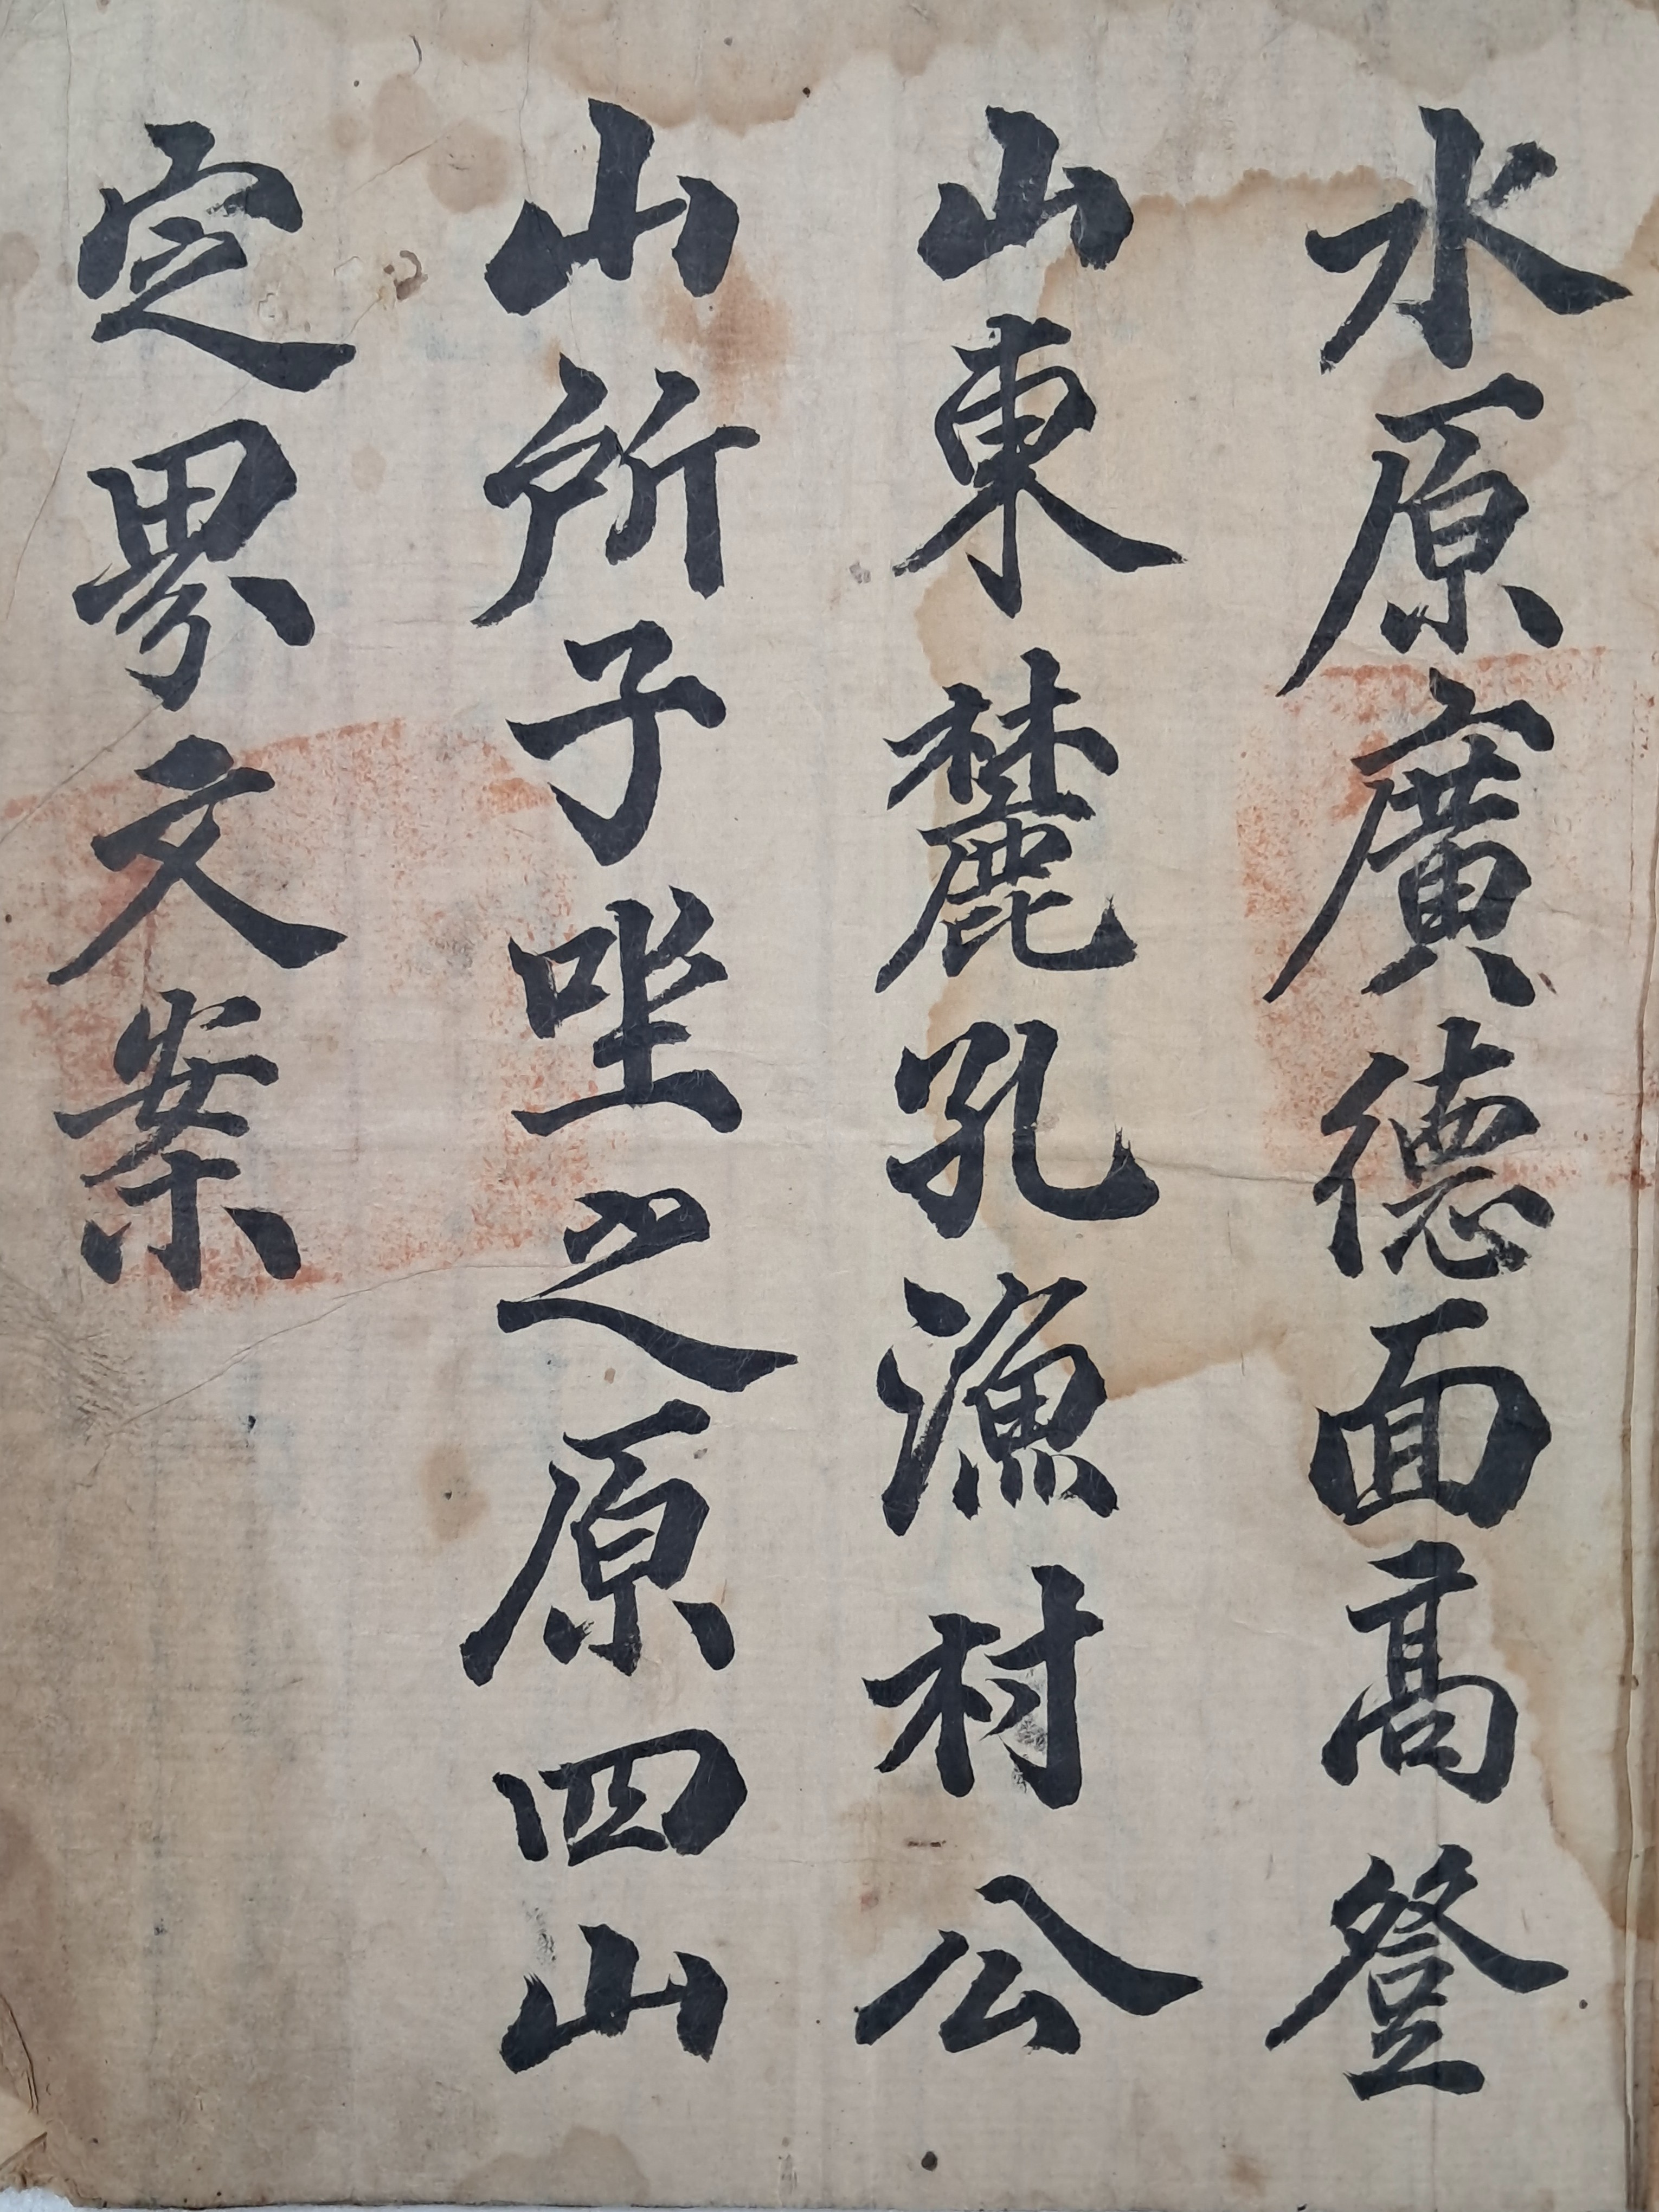 水原廣德面髙登
山東麓孔漁村公
山所子坐之原四山
定界文案